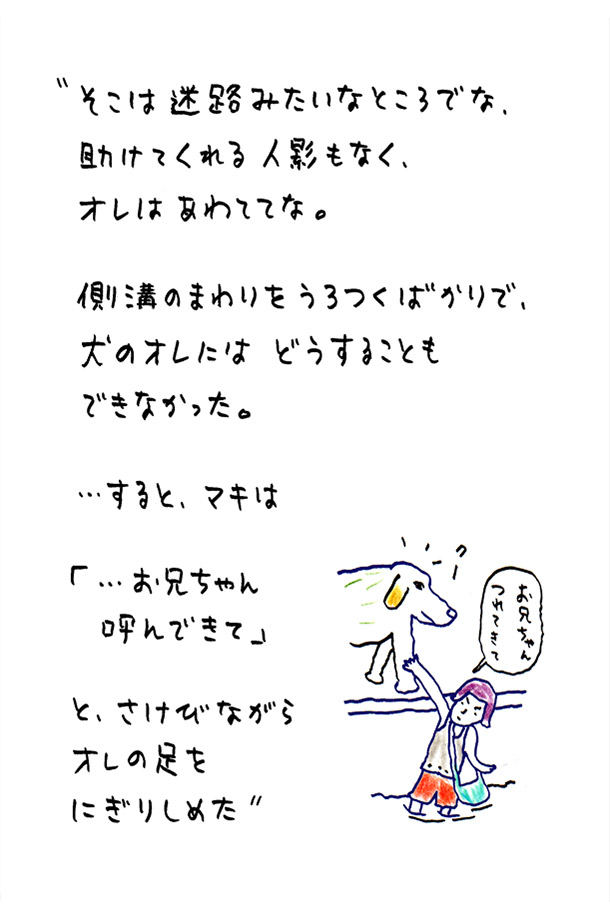 〝そこは 迷路みたいなところでな、
助けてくれる 人影もなく、
オレは あわててな。
側溝のまわりを うろつくばかりで、
犬のオレには どうすることも
できなかった。
…すると、マキは
「…お兄ちゃん
呼んできて」
と、さけびながら
オレの足を
にぎりしめた〞
お兄ちゃん
つれてきて